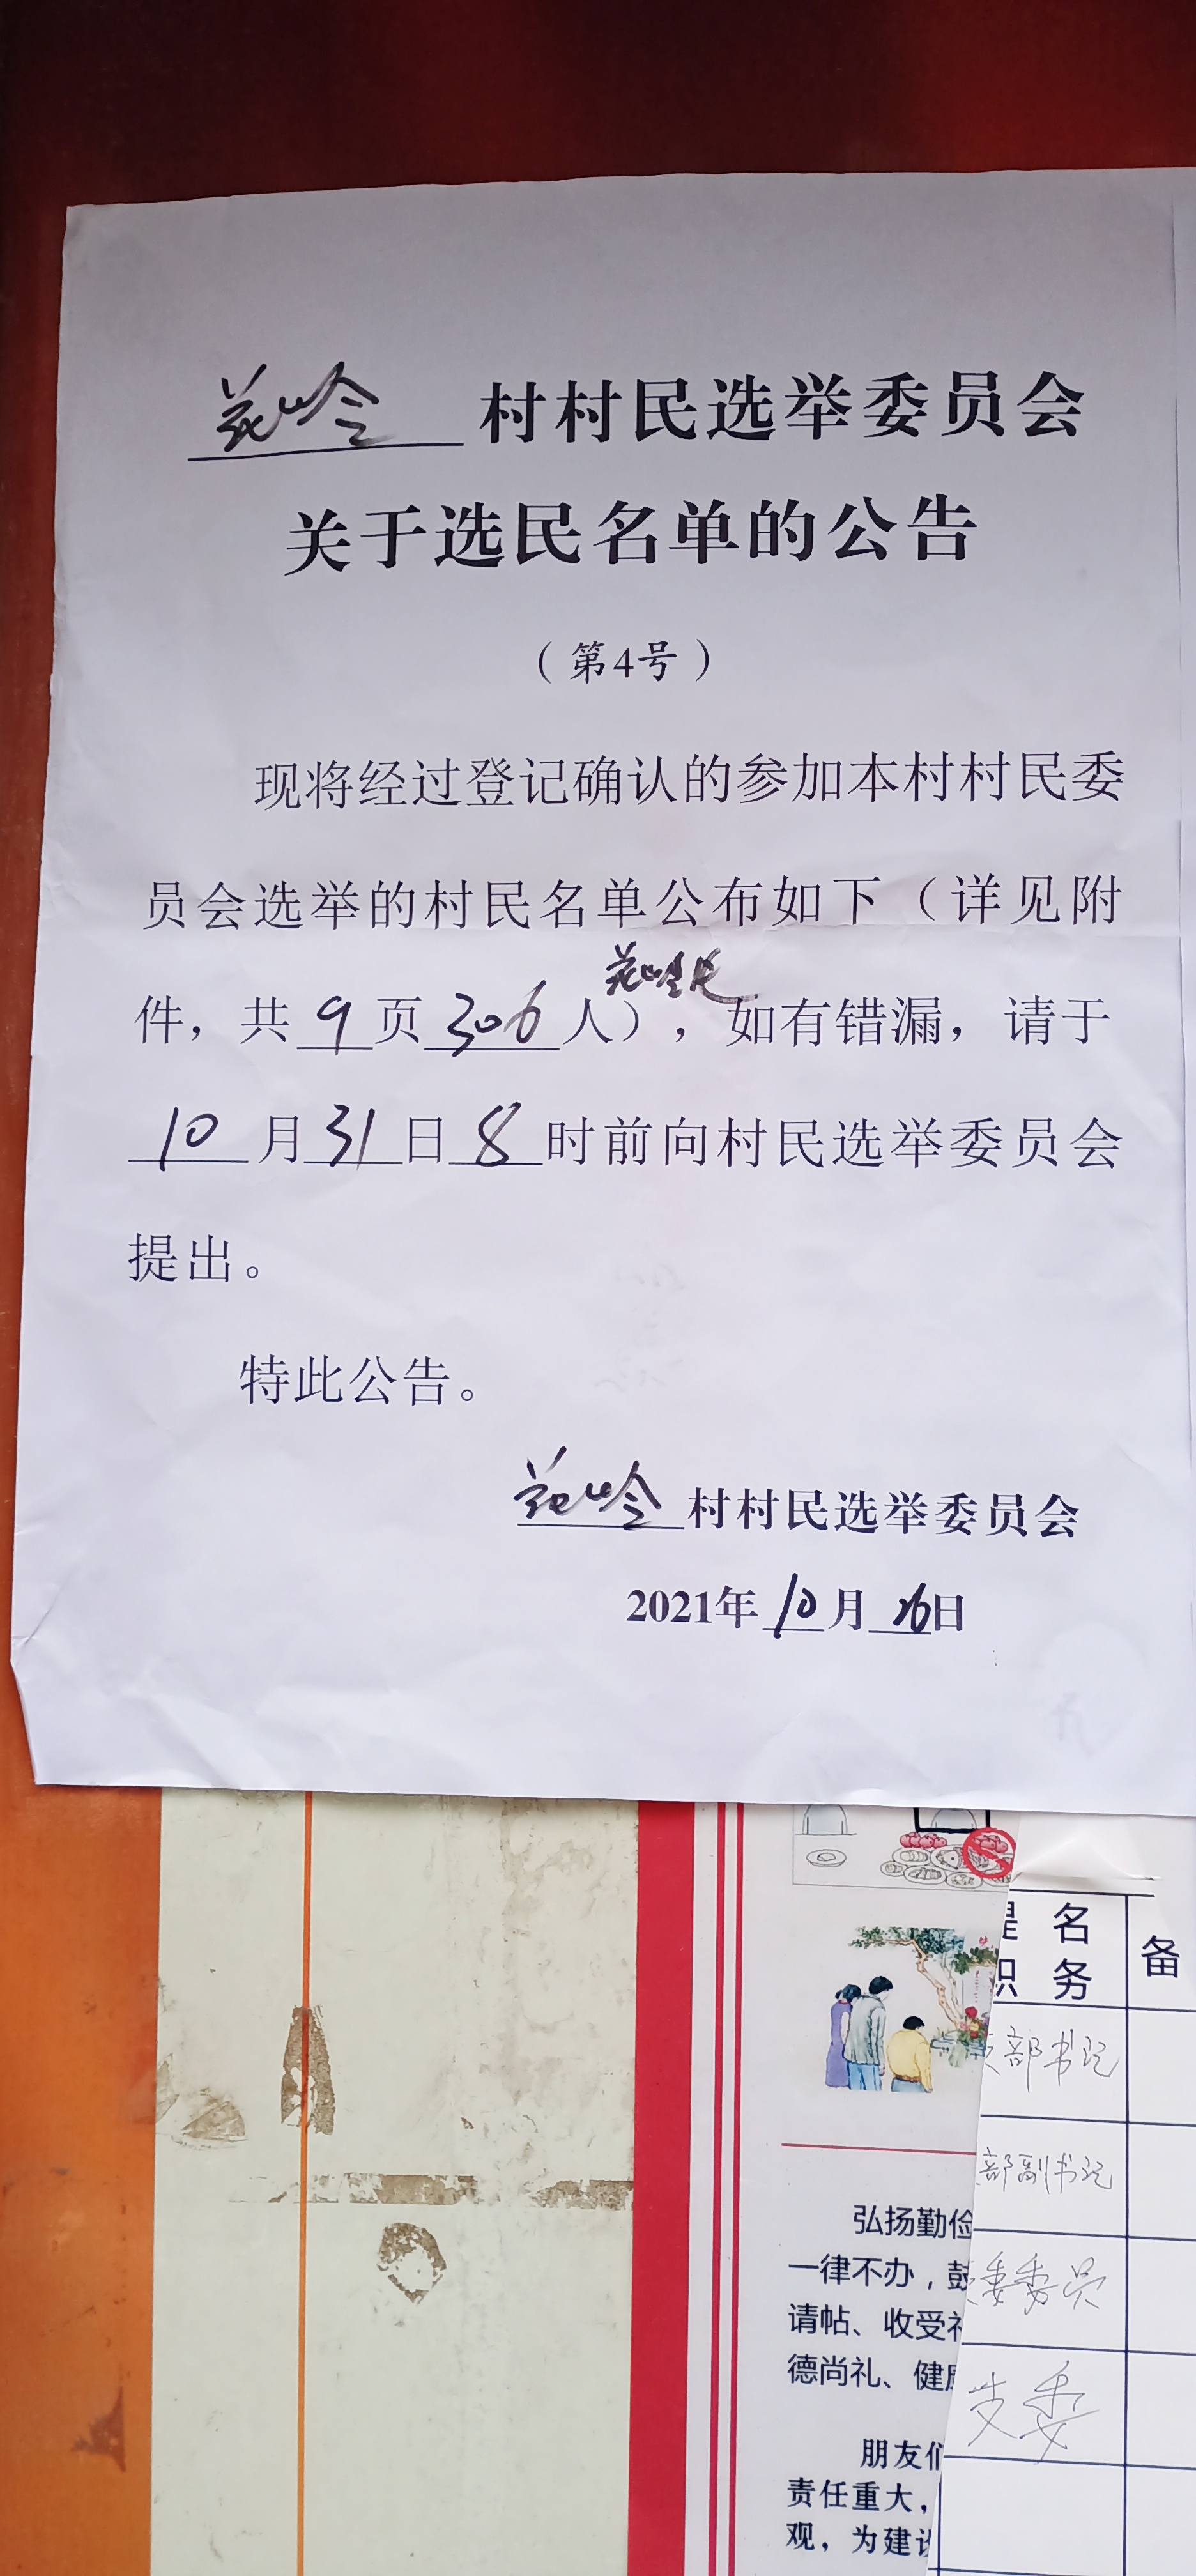 花岭村村民选举委员会
关于选民名单的公告
（第4号）
现将经过登记确认的参加本村村民委
员会选举的村民名单公布如下（详见附
花岭
件，共9页306人），如有错漏，请于
10月31日8时前向村民选举委员会
提出。
特此公告。
花岭村村民选举委员会
2021年10月26日
名 备
职 务
部书记
部副书记
委委员
支委
弘扬勤俭
一律不办，鼓
请帖、收受礼
德尚礼、健康
朋友们
责任重大，
观，为建设